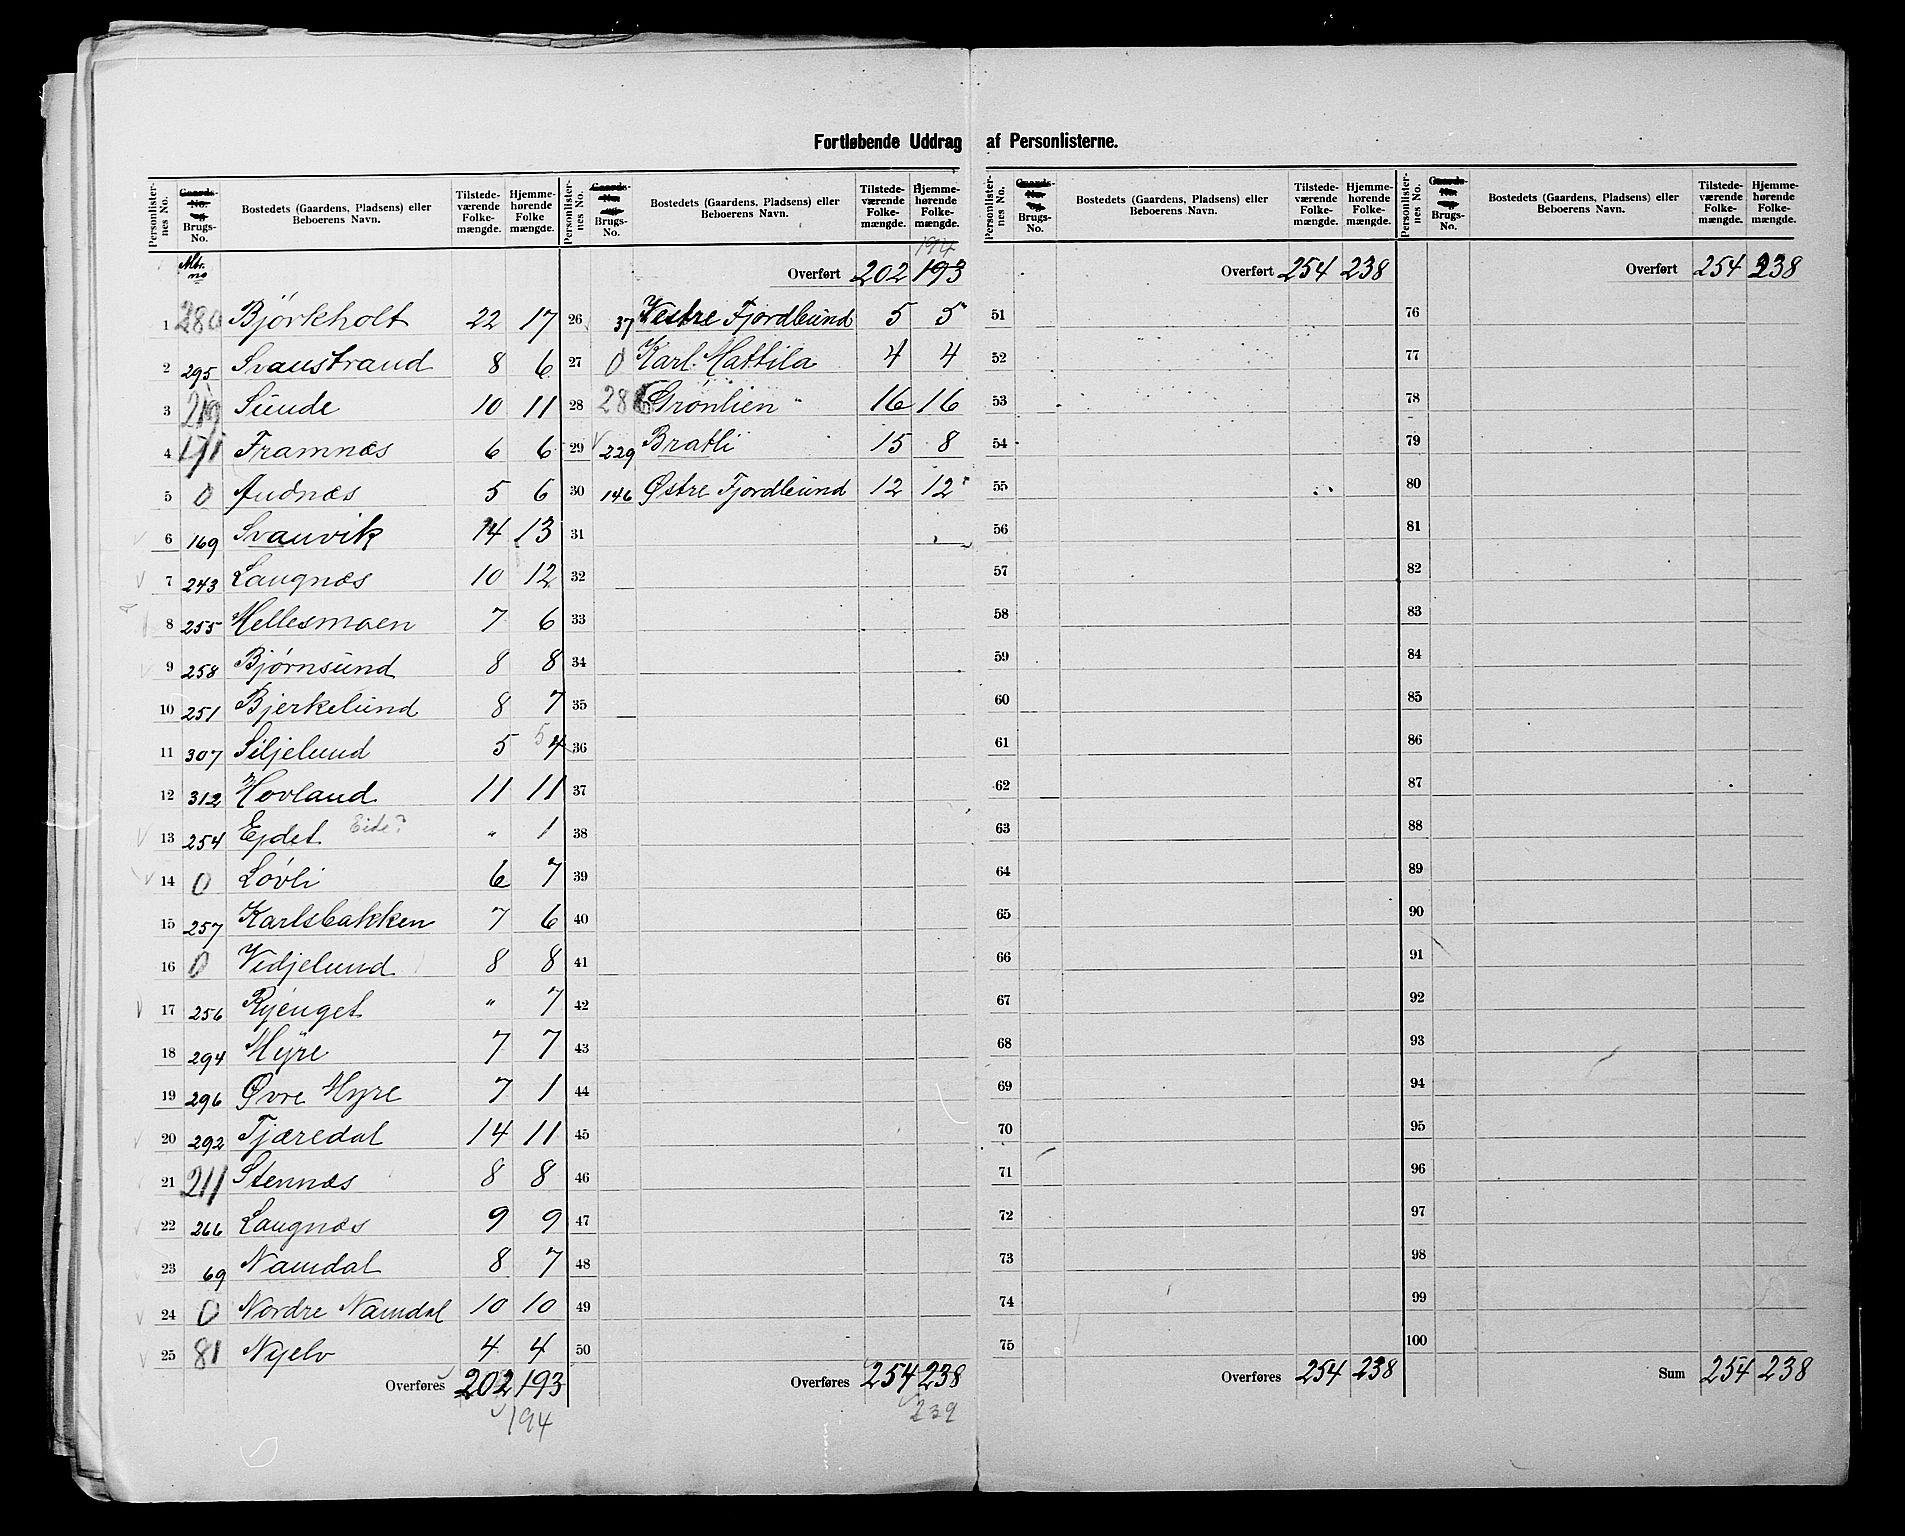 Fortløbende Uddrag af Personlisterne.
Personlister-nes No. Gaards-No. og Brugs-No. Bostedets (Gaardens, Pladsens) eller Beboerens Navn. Tilstede-værende Folke-mængde. Hjemme-hørende Folke mængde.
Personlister-nes No. Gaards-No. og Brugs-No. Bostedets (Gaardens, Pladsens) eller Beboerens Navn. Tilstede-værende Folke-mængde. Hjemme-hørende Folke-mængde.
Personlister-nes No. Gaards-No. og Brugs-No. Bostedets (Gaardens, Pladsens) eller Beboerens Navn. Tilstede-værende Folke-mængde. Hjemme-hørende Folke-mængde.
Personlister-nes No. Gaards-No. og Brugs-No. Bostedets (Gaardens, Pladsens) eller Beboerens Navn. Tilstede-værende Folke-mængde. Hjemme-hørende Folke-mængde.
Mtr. no
1 280 Björkholt 22 17
2 295 Svanstrand 8 6
3 219 Sunde 10 11
4 171 Framnæs 6 6
5 0 Audnæs 5 6
6 169 Svanvik 14 13
7 243 Langnæs 10 12
8 255 Hellesmoen 7 6
9 258 Bjørnsund 8 8
10 251 Bjerkelund 8 7
11 307 Siljelund 5 5 4
12 312 Hovland 11 11
13 254 Ejdet Eide? " 1
14 0 Løvli 6 7
15 257 Karlsbakken 7 6
16 0 Vidjelund 8 8
17 256 Ryenget " 7
18 294 Myre 7 7
19 296 Øvre Myre 7 1
20 292 Tjæredal 14 11
21 211 Stennæs 8 8
22 266 Langnæs 9 9
23 69 Namdal 8 7
24 0 Nordre Namdal 10 10
25 81 Nyelv 4 4
Overføres 202 193
194
194
Overført 202 193
26 37 Vestre Fjordlund 5 5
27 0 Karl Mattila 4 4
28 286 Grönlien " 16 16
29 229 Bratli 15 8
30 146 Østre Fjordlund 12 12
31
32
33
34
35
36
37
38
39
40
41
42
43
44
45
46
47
48
49
50
Overføres 254 238
239
Overført 254 238
51
52
53
54
55
56
57
58
59
60
61
62
63
64
65
66
67
68
69
70
71
72
73
74
75
Overføres 254 238
Overført 254 238
76
77
78
79
80
81
82
83
84
85
86
87
88
89
90
91
92
93
94
95
96
97
98
99
100
Sum 254 238